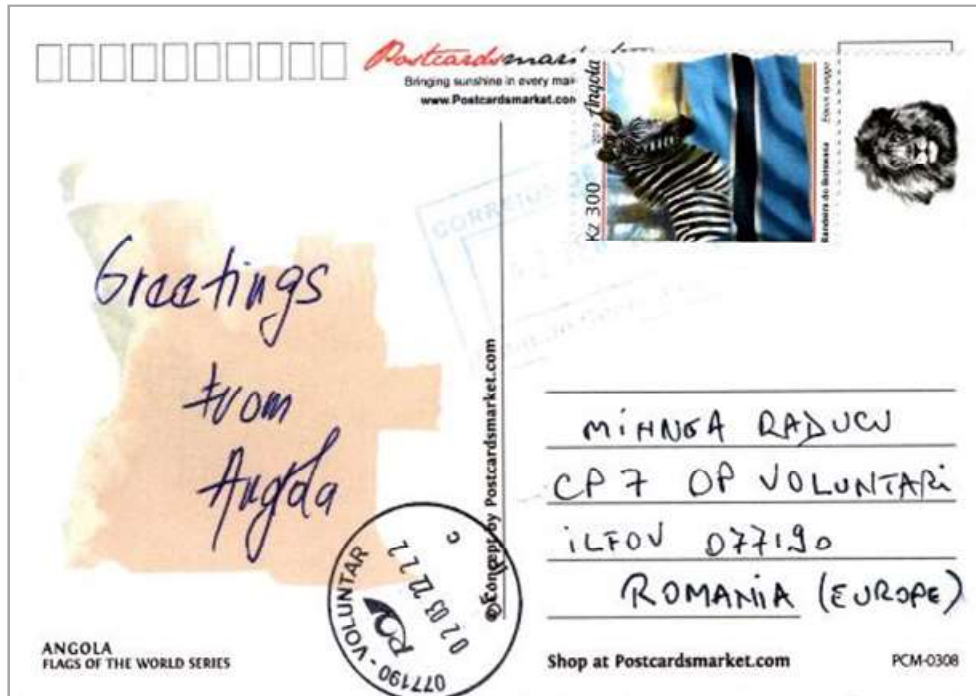 Postcardsmar
Bringing sunshine in every mai
www.Postcardsmarket.com
Kz 300
2019 Angola
Bandeira do Botswana
CORREIOS DE
Greetings
From
Angola
© Concept by Postcardsmarket.com
MIHNEA RADUCU
CP 7 OP VOLUNTARI
ILFOV 077190
ROMANIA (EUROPE)
077190 - VOLUNTAR
02 03 22
C
ANGOLA
FLAGS OF THE WORLD SERIES
Shop at Postcardsmarket.com
PCM-0308